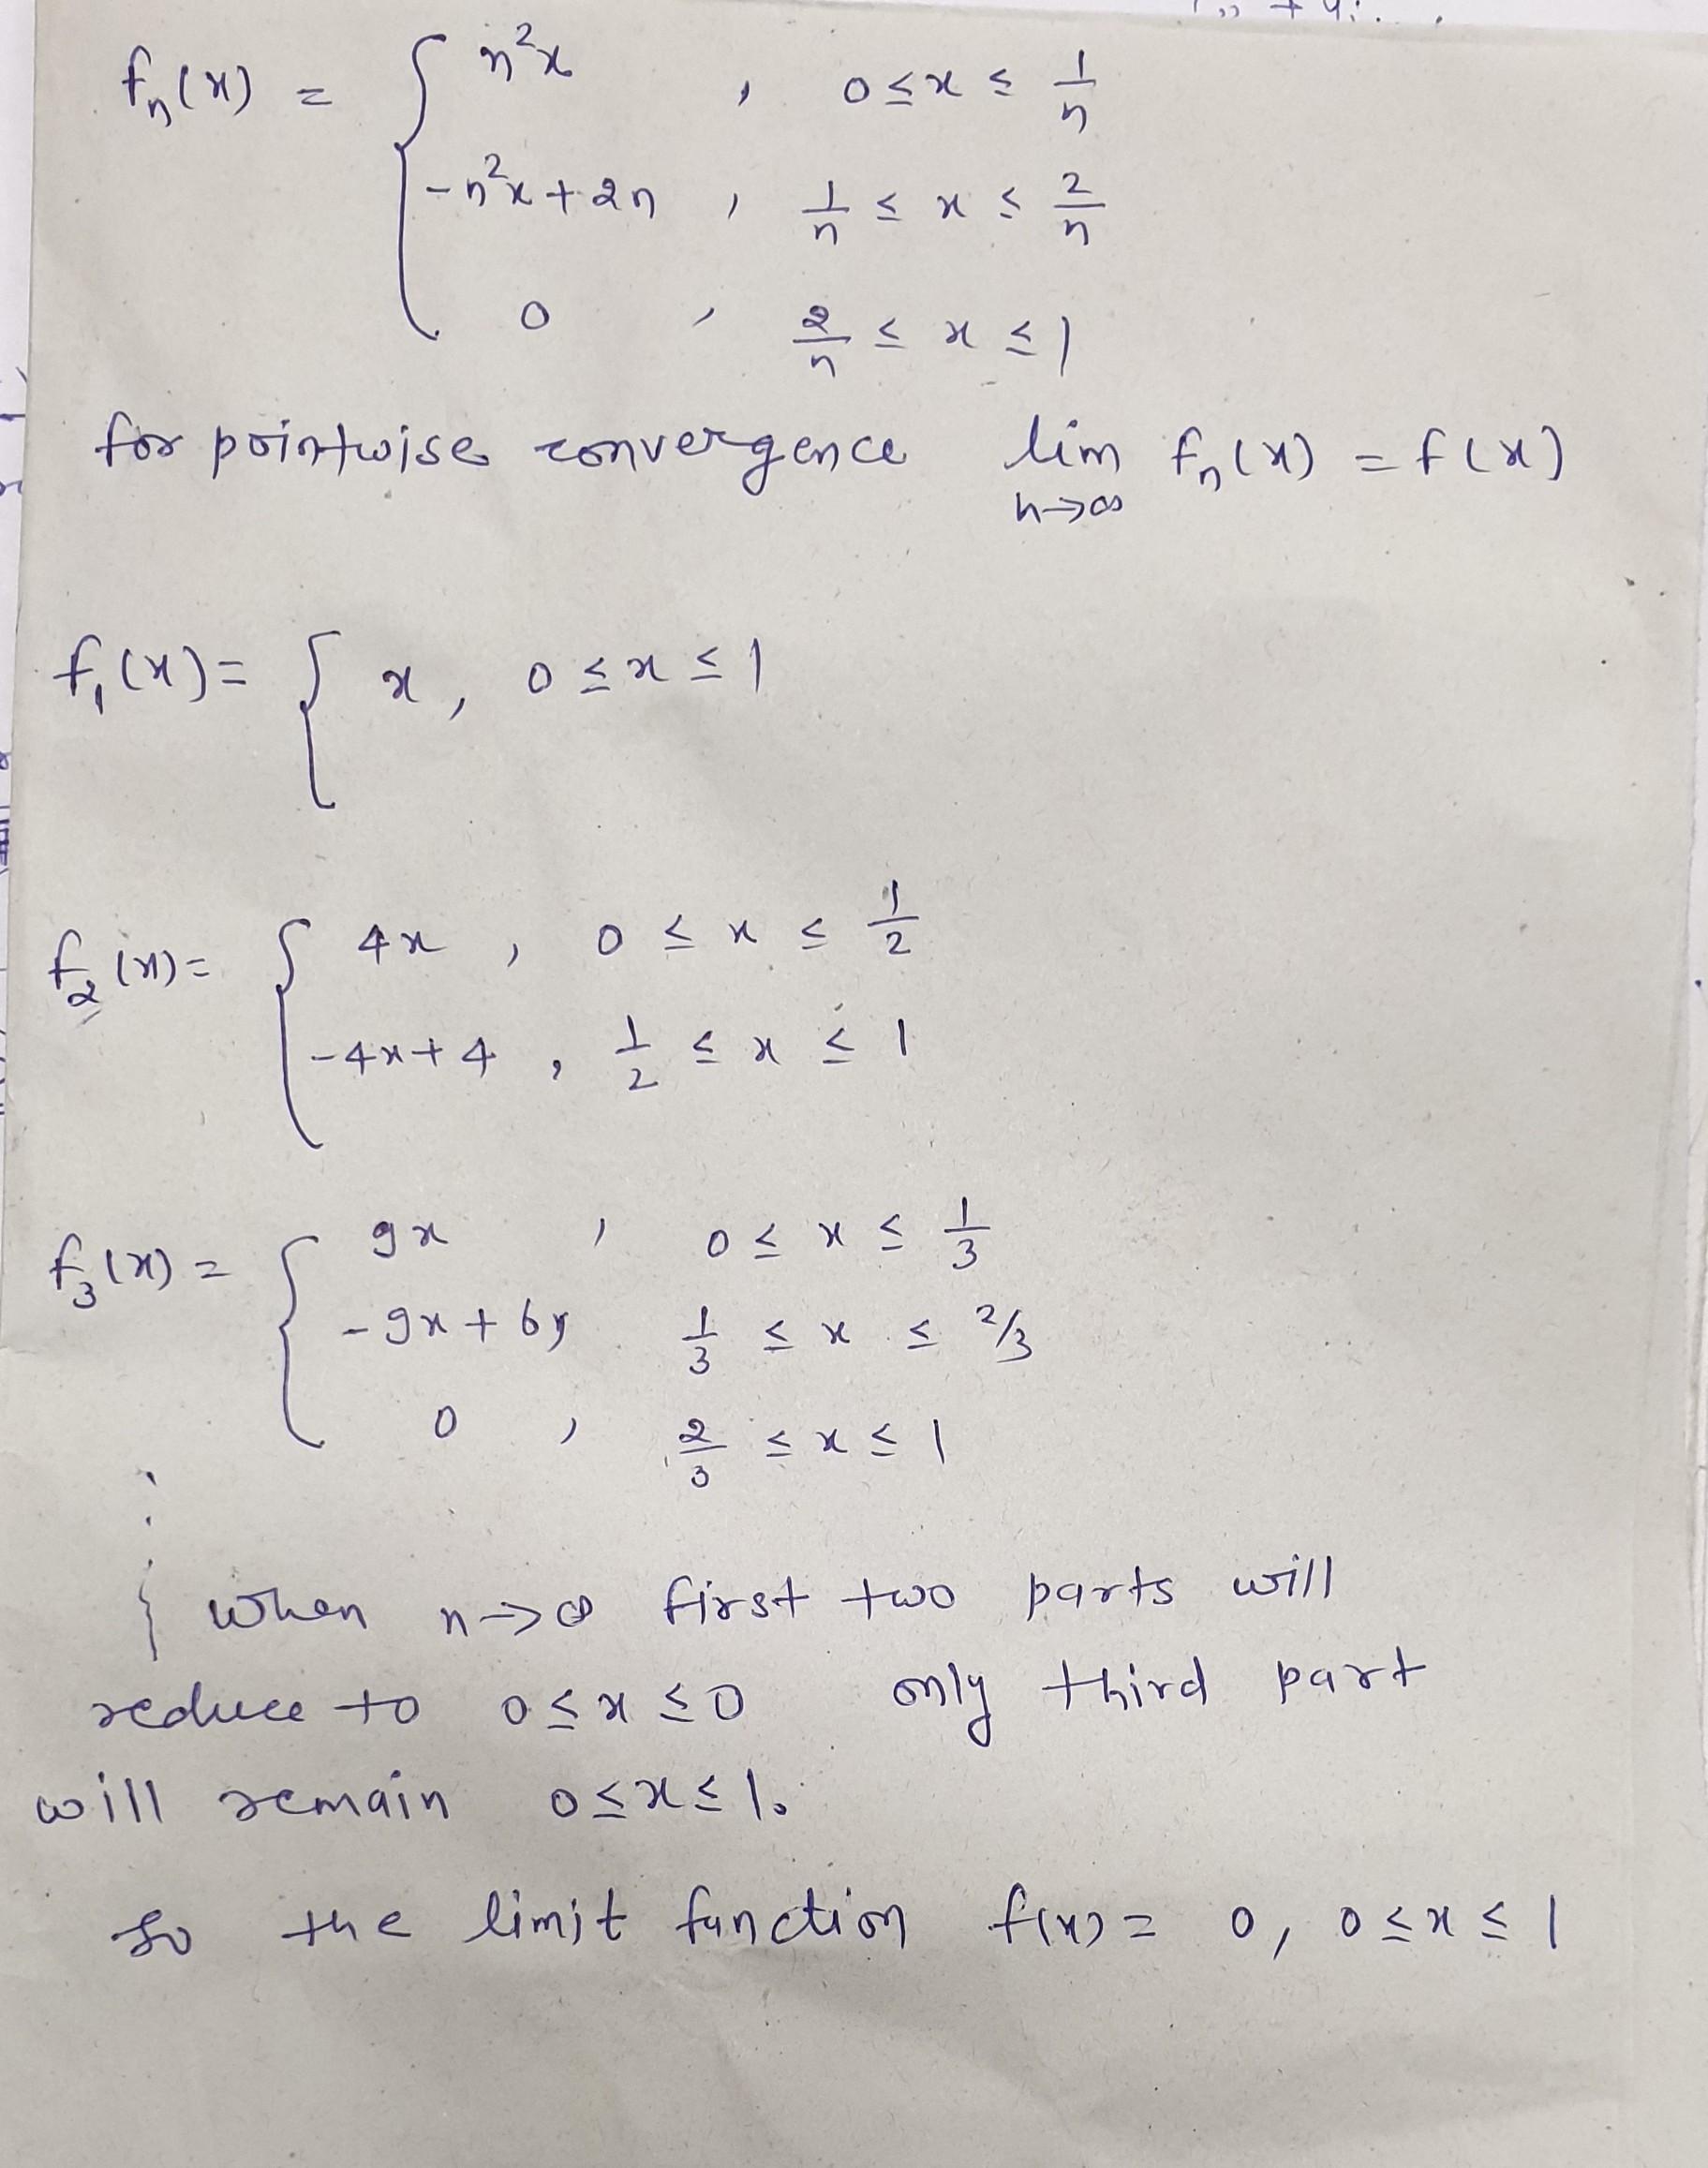 fₙ(x) = { n²x , 0 ≤ x ≤ 1/n
-n²x + 2n , 1/n ≤ x ≤ 2/n
0 , 2/n ≤ x ≤ 1
for pointwise convergence lim n→∞ fₙ(x) = f(x)
f₁(x) = { x, 0 ≤ x ≤ 1
f₂(x) = { 4x , 0 ≤ x ≤ 1/2
-4x + 4 , 1/2 ≤ x ≤ 1
f₃(x) = { 9x , 0 ≤ x ≤ 1/3
-9x + 6, 1/3 ≤ x ≤ 2/3
0 , 2/3 ≤ x ≤ 1
when n→∞ first two parts will
reduce to 0 ≤ x ≤ 0 only third part
will remain 0 ≤ x ≤ 1.
so the limit function f(x) = 0, 0 ≤ x ≤ 1